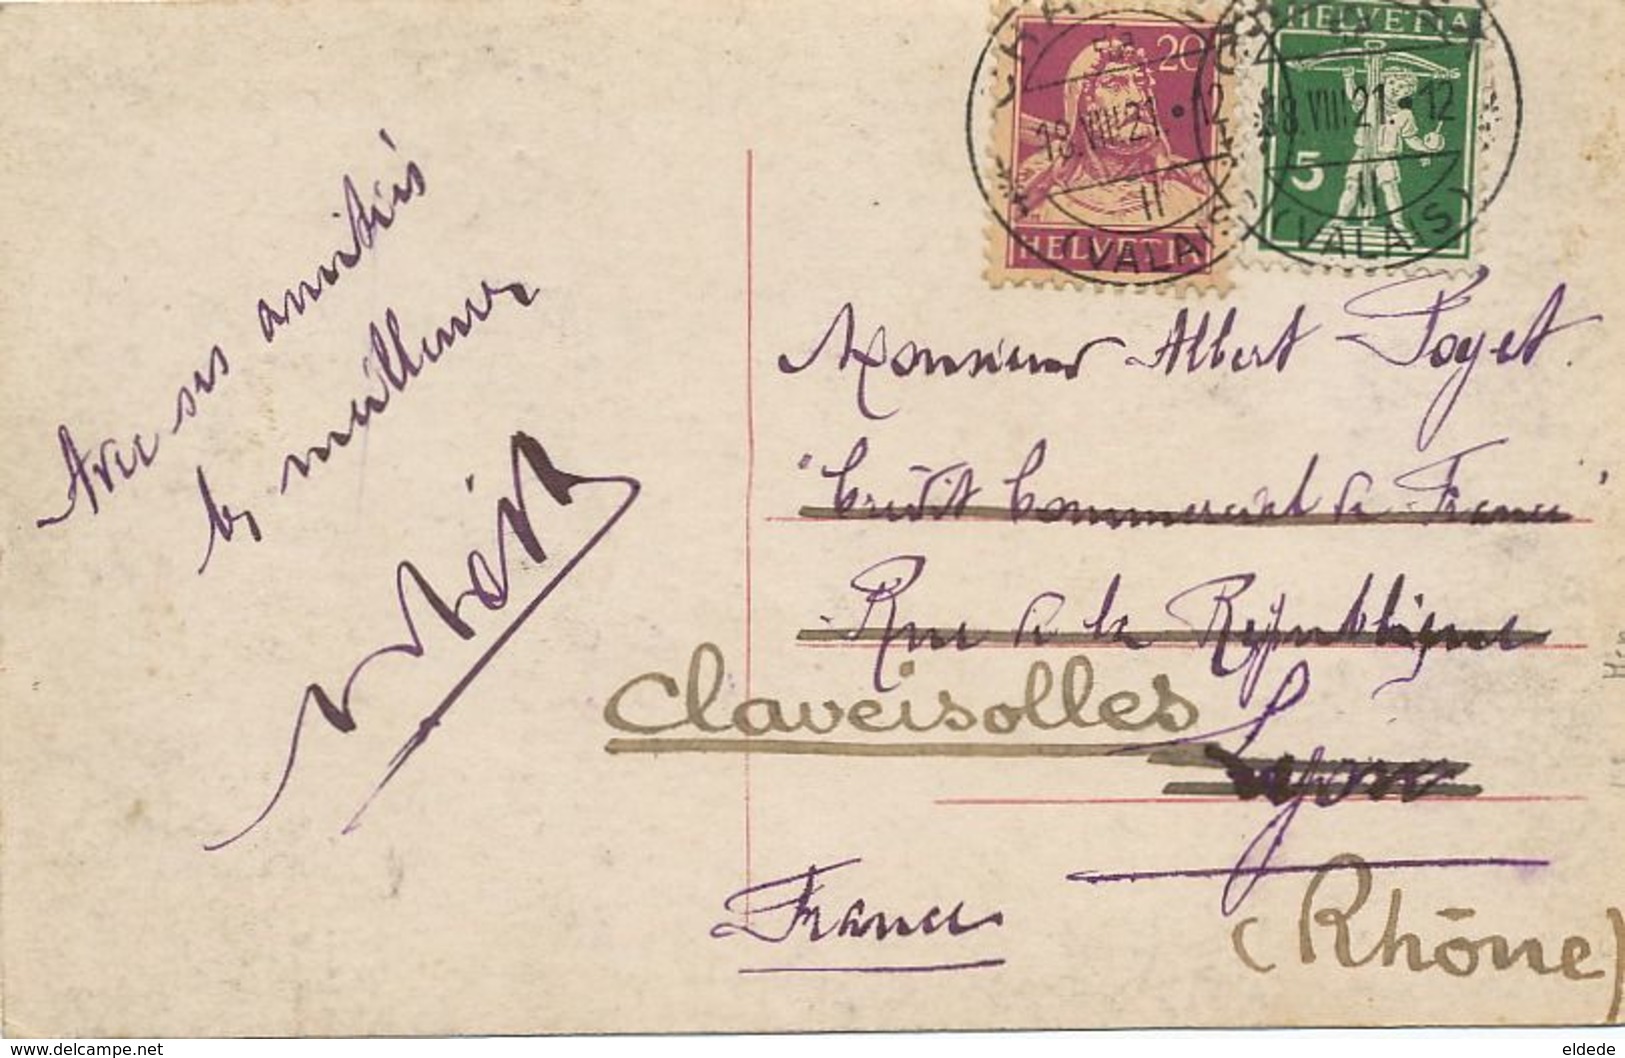 Avec ses amitiés
les meilleures
HELVETIA
20
18.VIII.21.•12
II
(VALAIS)
HELVETIA
5
18.VIII.21.•12
II
(VALAIS)
Monsieur Albert Poyet.
"Crédit Commercial de France"
Rue de la République
Claveisolles
Lyon
France
(Rhône)
www.delcampe.net
eldede